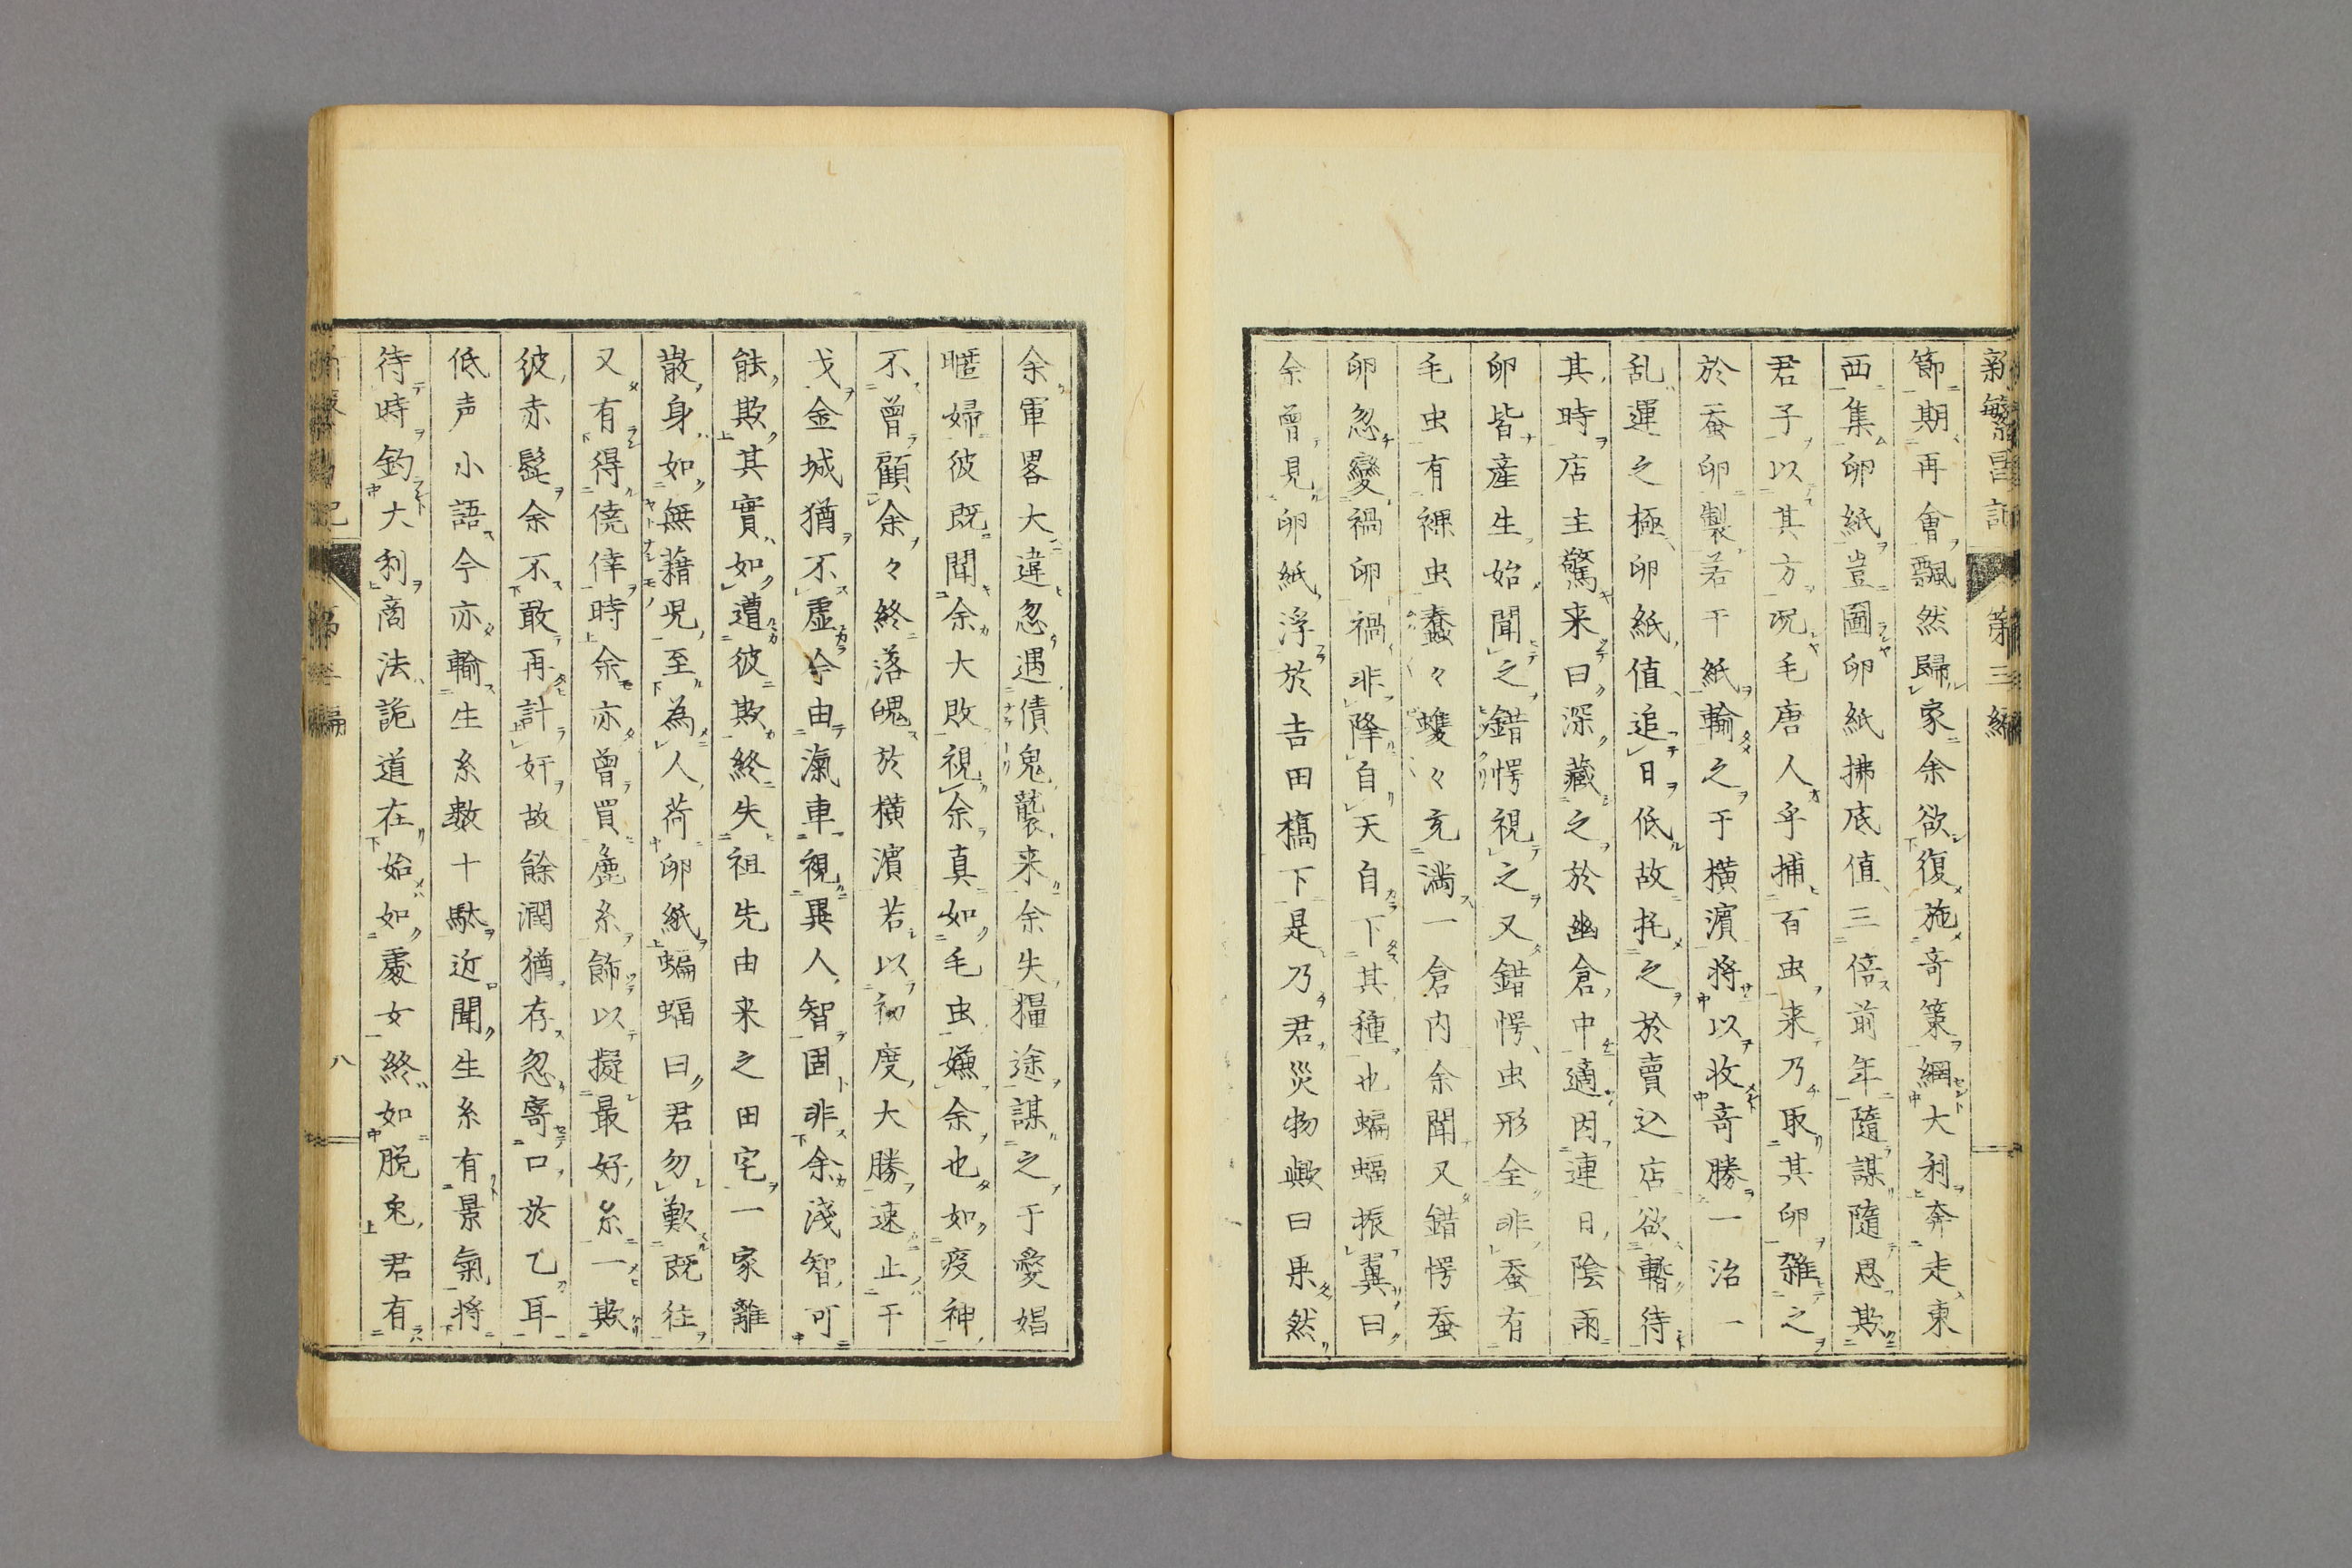 新繁昌記 第三編
節期再會飄然歸家余欲復施奇策網大利奔走東
西集卵紙豈圖卵紙拂底值三倍前年隨謀隨思欺
君子以其方况毛唐人乎捕百虫来乃取其卵雑之
於蚕卵製若干紙輸之于横濱将以收奇勝一治一
乱運之極卵紙值追日低故托之於賣込店欲暫待
其時店主驚来曰深藏之於幽倉中適因連日陰雨
卵皆產生始聞之錯愕視之又錯愕虫形全非蚕有
毛虫有裸虫蠢々蠖々充満一倉内余聞又錯愕蚕
卵忽變禍卵禍非降自天自下其種也蝙蝠振翼曰
余曾見卵紙浮於吉田橋下是乃君災物歟曰果然
余軍畧大違忽遇債鬼襲来余失糧途謀之于愛娼
暱婦彼既聞余大敗視余真如毛虫嫌余也如疫神
不曾顧余々終落魄於横濱若以初度大勝速止干
戈金城猶不虚今由滊車視異人智固非余淺智可
能欺其實如遭彼欺終失祖先由来之田宅一家離
散身如無藉児至為人荷卵紙蝙蝠曰君勿歎既往
又有得僥倖時余亦曾買麁糸飾以擬最好糸一欺
彼赤髭余不敢再計奸故餘潤猶存忽寄口於乙耳
低声小語今亦輸生糸数十駄近聞生糸有景氣将
待時釣大利商法詭道在始如處女終如脱兎君有
八